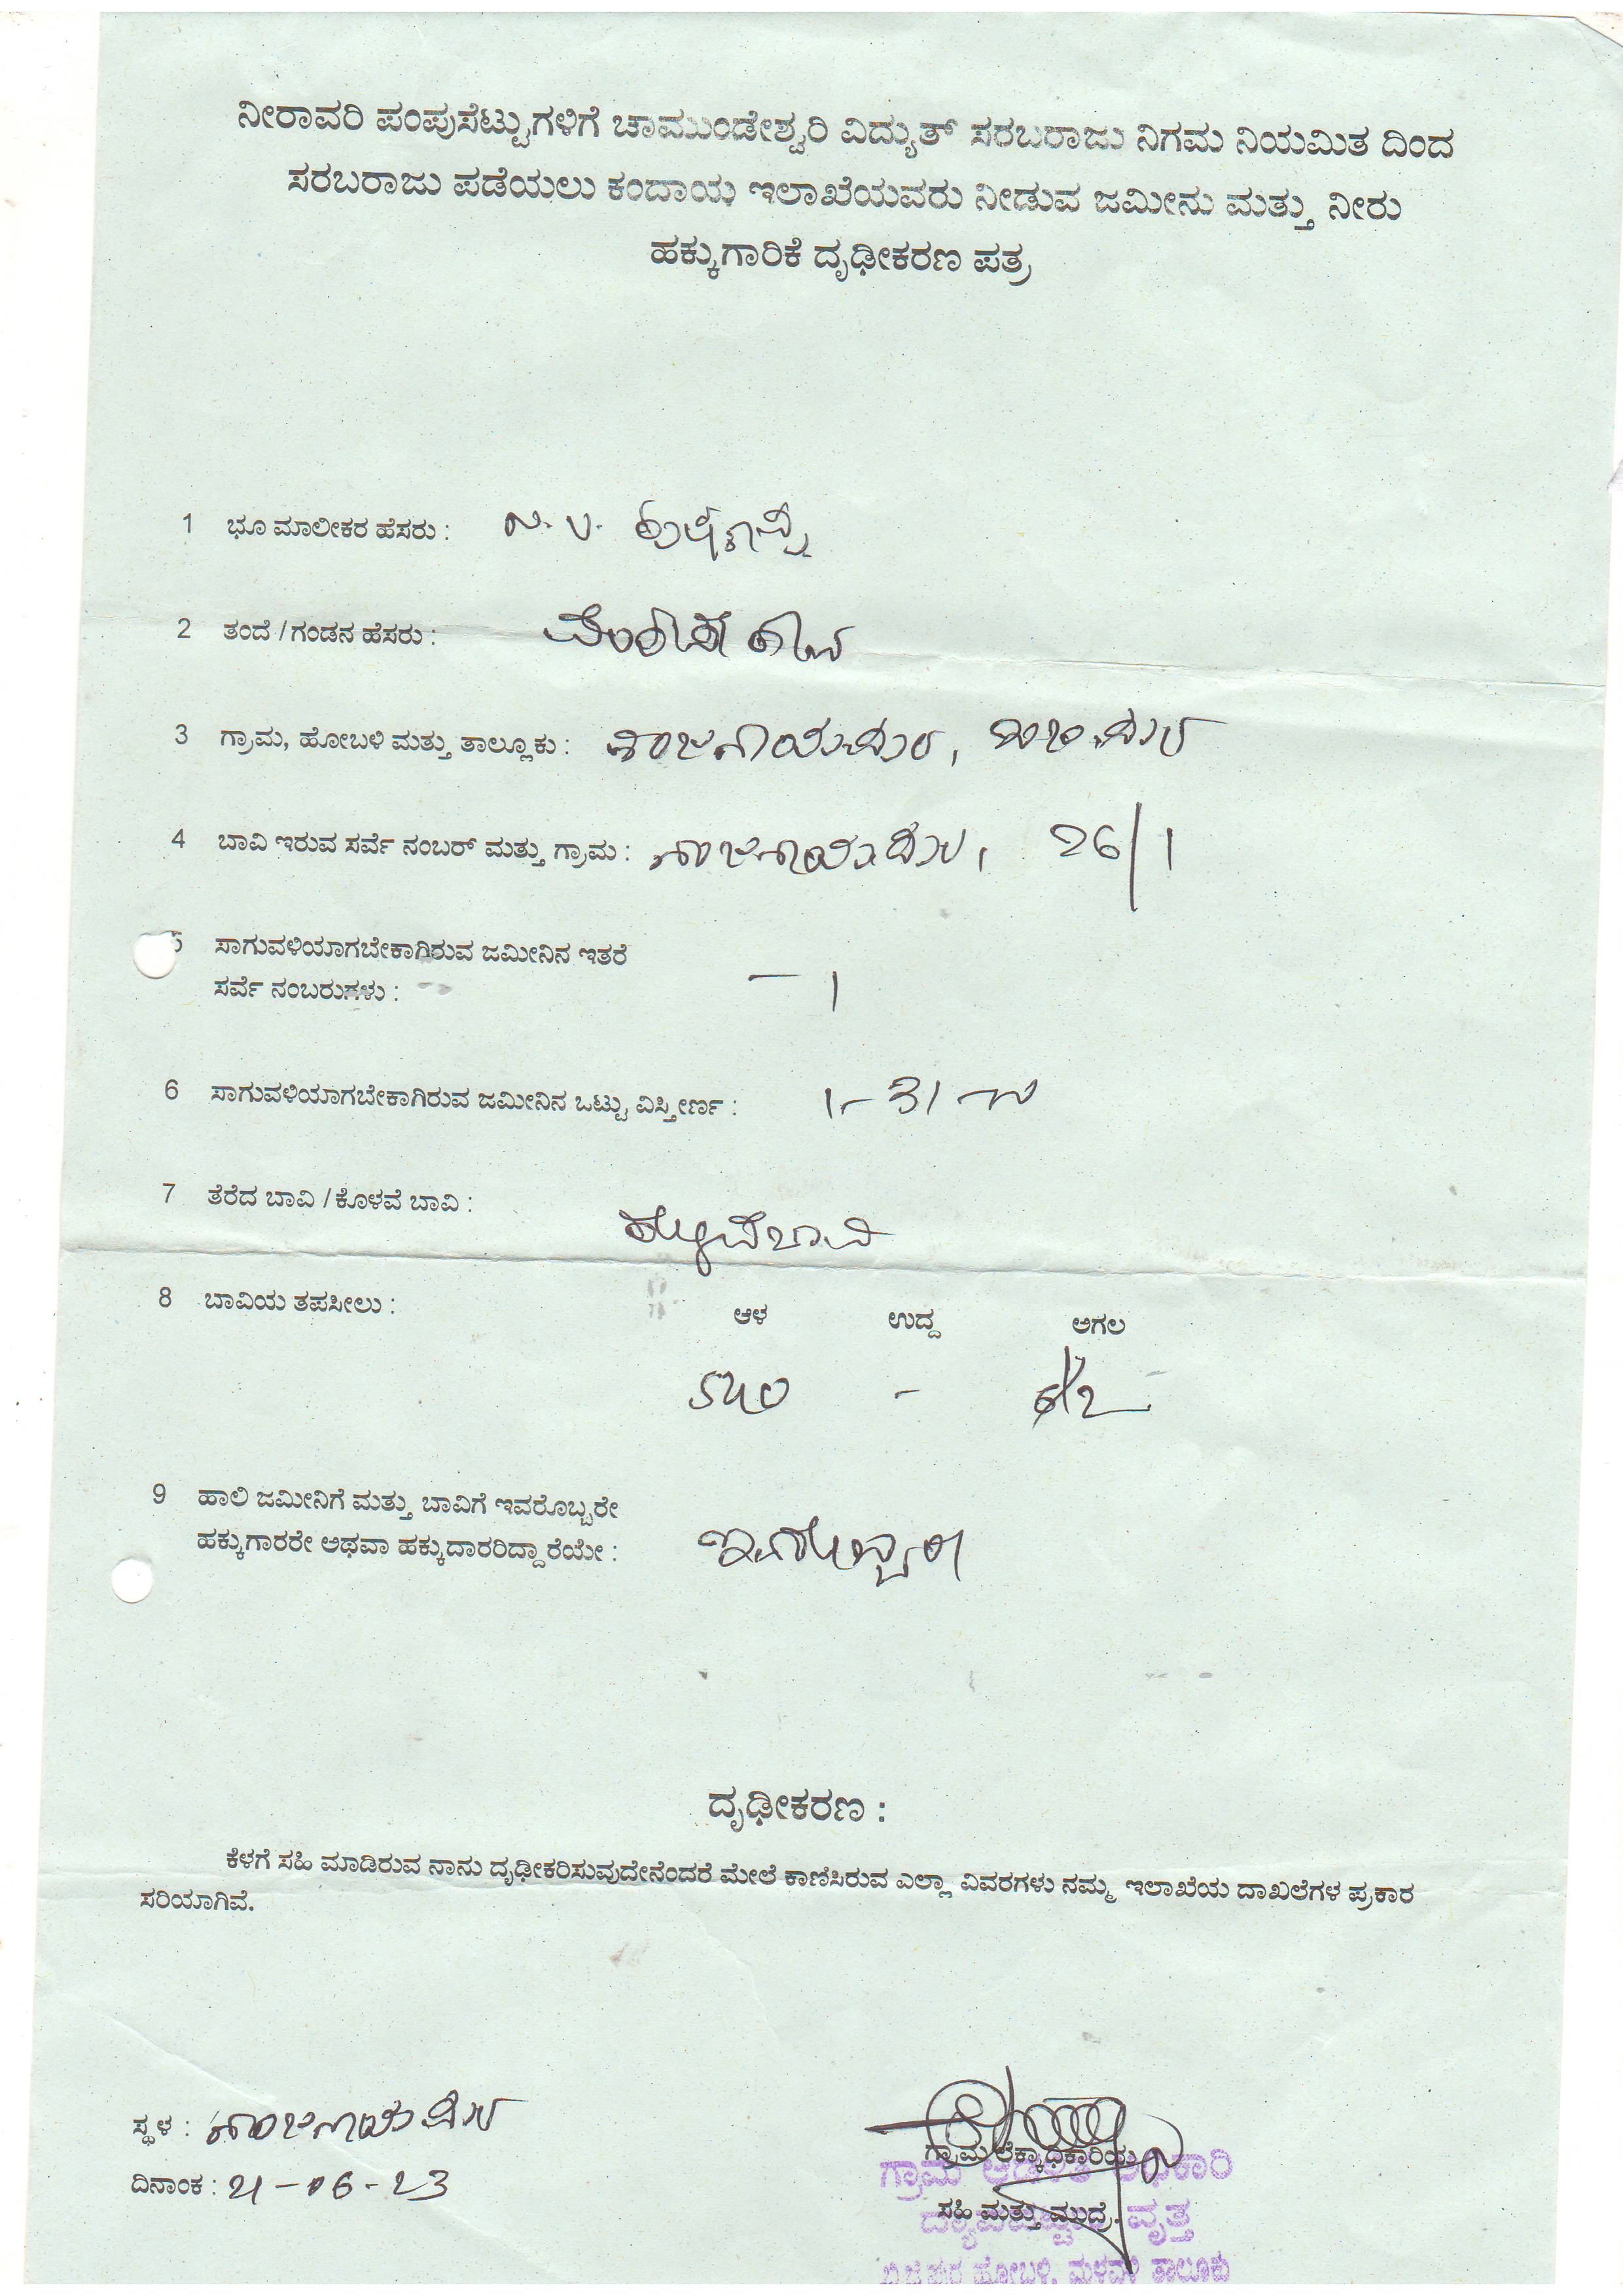 ನೀರಾವರಿ ಪಂಪುಸೆಟ್ಟುಗಳಿಗೆ ಚಾಮುಂಡೇಶ್ವರಿ ವಿದ್ಯುತ್ ಸರಬರಾಜು ನಿಗಮ ನಿಯಮಿತ ದಿಂದ
ಸರಬರಾಜು ಪಡೆಯಲು ಕಂದಾಯ ಇಲಾಖೆಯವರು ನೀಡುವ ಜಮೀನು ಮತ್ತು ನೀರು
ಹಕ್ಕುಗಾರಿಕೆ ದೃಢೀಕರಣ ಪತ್ರ
1 ಭೂ ಮಾಲೀಕರ ಹೆಸರು :
2 ತಂದೆ / ಗಂಡನ ಹೆಸರು :
3 ಗ್ರಾಮ, ಹೋಬಳಿ ಮತ್ತು ತಾಲ್ಲೂಕು :
4 ಬಾವಿ ಇರುವ ಸರ್ವೆ ನಂಬರ್ ಮತ್ತು ಗ್ರಾಮ : 26/1
5 ಸಾಗುವಳಿಯಾಗಬೇಕಾಗಿರುವ ಜಮೀನಿನ ಇತರೆ
ಸರ್ವೆ ನಂಬರುಗಳು :
6 ಸಾಗುವಳಿಯಾಗಬೇಕಾಗಿರುವ ಜಮೀನಿನ ಒಟ್ಟು ವಿಸ್ತೀರ್ಣ : 1-31
7 ತೆರೆದ ಬಾವಿ / ಕೊಳವೆ ಬಾವಿ : ಕೊಳವೆಬಾವಿ
8 ಬಾವಿಯ ತಪಸೀಲು : ಆಳ ಉದ್ದ ಅಗಲ
540 - 6½
9 ಹಾಲಿ ಜಮೀನಿಗೆ ಮತ್ತು ಬಾವಿಗೆ ಇವರೊಬ್ಬರೇ
ಹಕ್ಕುಗಾರರೇ ಅಥವಾ ಹಕ್ಕುದಾರರಿದ್ದಾರೆಯೇ : ಇವರೊಬ್ಬರೇ
ದೃಢೀಕರಣ :
ಕೆಳಗೆ ಸಹಿ ಮಾಡಿರುವ ನಾನು ದೃಢೀಕರಿಸುವುದೇನೆಂದರೆ ಮೇಲೆ ಕಾಣಿಸಿರುವ ಎಲ್ಲಾ ವಿವರಗಳು ನಮ್ಮ ಇಲಾಖೆಯ ದಾಖಲೆಗಳ ಪ್ರಕಾರ
ಸರಿಯಾಗಿವೆ.
ಸ್ಥಳ :
ದಿನಾಂಕ : 21-06-23
ಗ್ರಾಮ ಲೆಕ್ಕಾಧಿಕಾರಿಯ
ಗ್ರಾಮ ಆಡಳಿತ ಅಧಿಕಾರಿ
ಸಹಿ ಮತ್ತು ಮುದ್ರೆ.
ವೃತ್ತ
ಬಿ.ಜಿ.ಪುರ ಹೋಬಳಿ, ಮಳವಳ್ಳಿ ತಾಲೂಕು